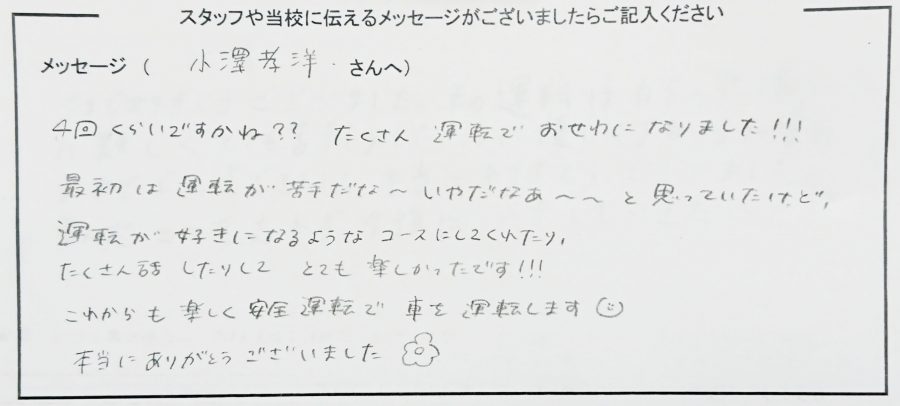 スタッフや当校に伝えるメッセージがございましたらご記入ください
メッセージ ( 小澤孝洋 さんへ)
4回くらいですかね?? たくさん 運転で おせわに なりました!!!
最初は 運転が 苦手だな〜 いやだなあ〜〜 と 思っていたけど,
運転が 好きになるような コースにしてくれたり,
たくさん話 したりして とても 楽しかったです!!!
これからも 楽しく 安全 運転で 車を 運転します☺
本当に ありがとう ございました